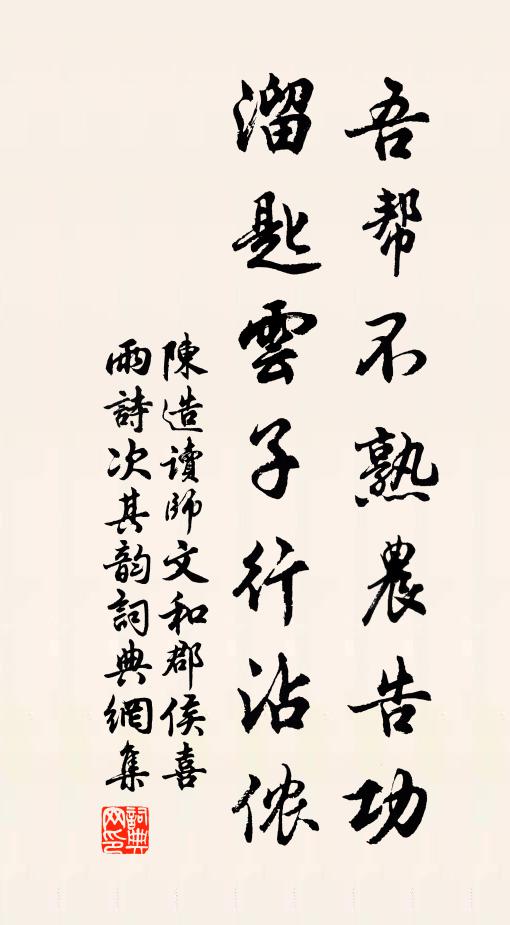 吾帮不熟農告功
溜匙雲子行沾侬
陳造讀師文和郡侯喜
雨詩次其韵詞典網集
詞典
网印